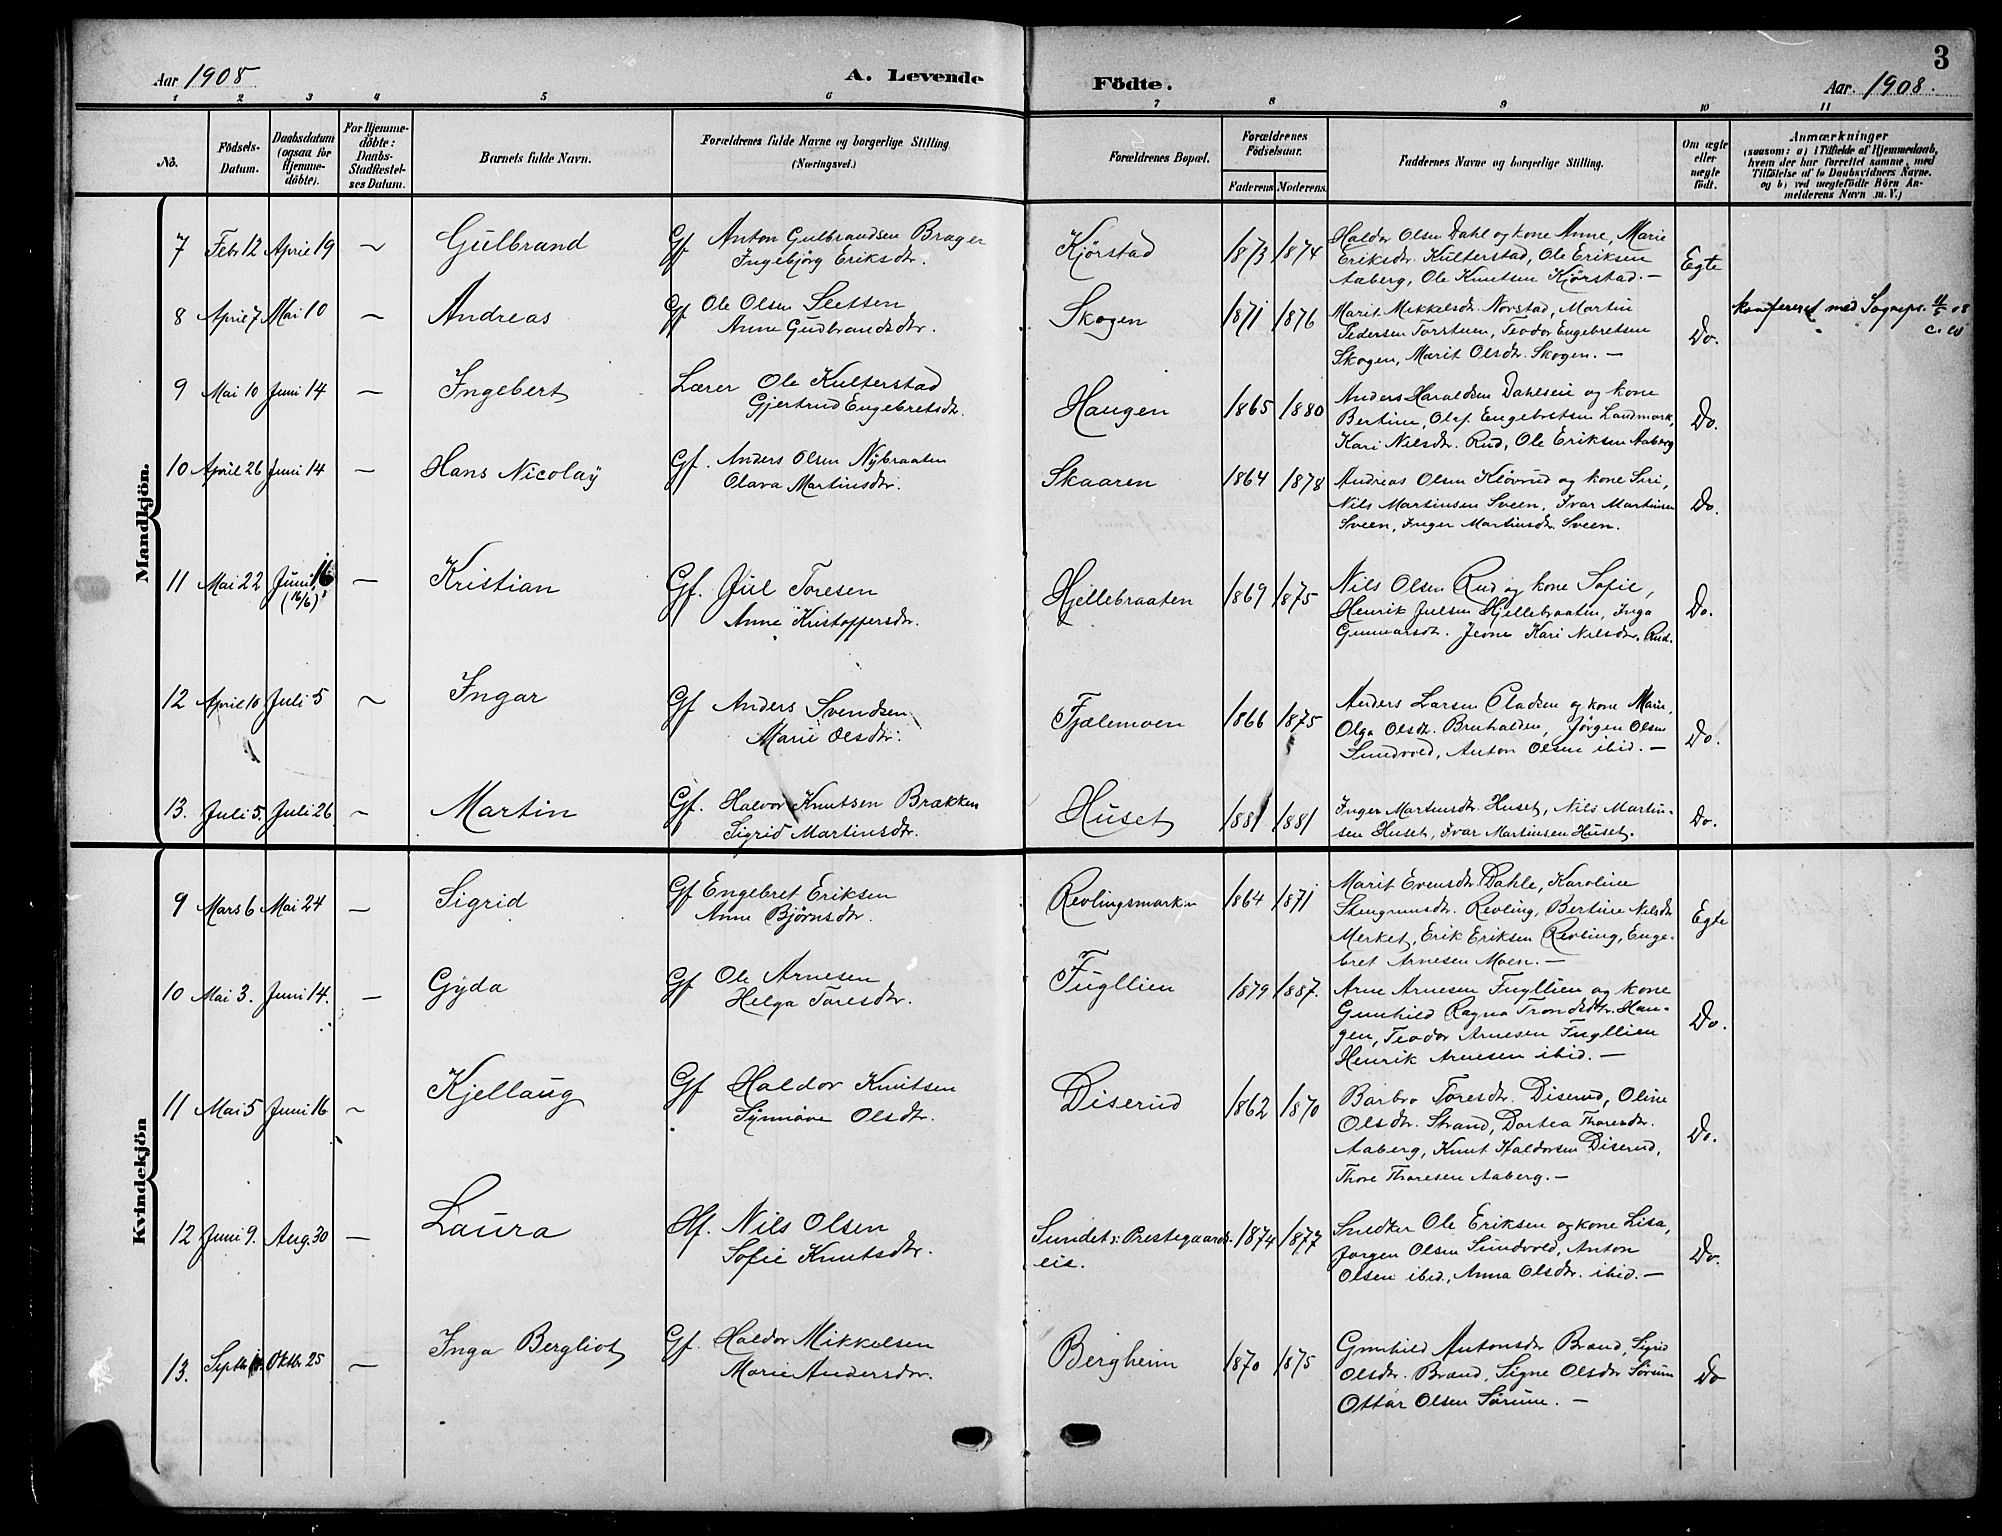 3
Aar 1908
A. Levende
Födte.
Aar. 1908.
1 2 3 4 5 6 7 8 9 10 11
No.
Födsels-Datum.
Daabsdatum (ogsaa for Hjemme-döbte).
For Hjemme-döbte: Daabs-Stadfæstel-ses Datum.
Barnets fulde Navn.
Forældrenes fulde Navne og borgerlige Stilling (Næringsvei.)
Forældrenes Bopæl.
Forældrenes Födselsaar.
Faderens Moderens.
Faddernes Navne og borgerlige Stilling.
Om ægte eller uægte födt.
Anmærkninger
(saasom: a) i Tilfælde af Hjemmedaab,
hvem der har forrettet samme, med
Tilföielse af to Daabsvidners Navne.
og b) ved uægtefödte Börn An-
melderens Navn m. V.)
Mandkjön.
7 Febr 12 April 19 ~ Gulbrand Gf Anton Gulbrandsen Brager
Ingebjörg Eriksdtr.
Kjørstad 1873 1874
Haldor Olsen Dahl og kone Anne, Marie
Eriksdtr. Kulterstad, Ole Eriksen
Aaberg, Ole Knutsen Kjørstad. —
Egte
8 April 7 Mai 10 ~ Andreas Gf Ole Olsen Sletsen
Anne Gudbrandsdtr.
Skogen 1871 1876
Marit Mikkelsdtr. Norstad, Martin
Pedersen Torstuen, Teodor Engebretsen
Skogen, Marit Olsdtr. Skogen. —
Do.
konfereret med Sognepr.
9 Mai 10 Juni 14 — Ingebert Lærer Ole Kulterstad
Gjertrud Engebretsdtr.
Haugen 1865 1880
Anders Haraldsen Dahlseie og kone
Bertine, Olaf Engebretsen Landmark,
Kari Nilsdtr. Rud, Ole Eriksen Aaberg
Do.
10 April 26 Juni 14 — Hans Nicolaÿ Gf. Anders Olsen Nÿbraaten
Olava Martinsdtr.
Skaaren 1864 1878
Andreas Olsen Kløvrud og kone Siri,
Nils Martinsen Sveen, Ivar Martinsen
Sveen, Inger Martinsdtr. Sveen.
Do.
11 Mai 22 Juni 16 (16/6) — Kristian Gf. Jul Toresen
Anne Kristoffersdtr.
Hjellebraaten 1869 1875
Nils Olsen Rud og kone Sofie,
Henrik Julsen Hjellebraaten, Inga
Gunnarsdtr. Jevne Kari Nilsdtr. Rud.
Do.
12 April 10 Juli 5 ~ Ingar Gf Anders Svendsen
Marie Olsdtr.
Fjælemoen 1866 1875
Anders Larsen Cladsen og kone Marie,
Olga Olsdtr. Bruhalden, Jørgen Olsen
Sundvold, Anton Olsen ibid. —
Do.
13. Juli 5. Juli 26 ~ Martin Gf. Halvor Knutsen Brækken
Sigrid Martinsdtr.
Huset 1881 1881
Inger Martinsdtr. Huset, Nils Martin-
sen Huset, Ivar Martinsen Huset.
Do.
Kvindekjön
9 Mars 6 Mai 24 — Sigrid Gf Engebret Eriksen
Anne Bjørnsdtr.
Revlingsmarken 1864 1871
Marit Evensdtr. Dahle, Karoline
Stengrunsdtr. Revling, Bertine Nilsdtr
Merket, Erik Eriksen Revling, Enge-
bret Arnesen Moen. —
Egte
10 Mai 3. Juni 14. — Gÿda Gf Ole Arnesen
Helga Toresdtr.
Fugllien 1879 1887.
Arne Arnesen Fugllien og kone
Gunhild Ragna Trondsdtr. Hau-
gen, Teodor Arnesen Fugllien
Henrik Arnesen ibid. —
Do.
11 Mai 5 Juni 16 ~ Kjellaug Gf Haldor Knutsen
Sÿnnøve Olsdtr.
Diserud 1862 1870
Barbro Toresdtr. Diserud, Oline
Olsdtr. Strand, Dortea Thoresdtr.
Aaberg, Knut Haldorsen Diserud,
Thore Thoresen Aaberg. —
Do.
12 Juni 9. Aug. 30 — Laura Gf. Nils Olsen
Sofie Knutsdtr.
Sundet i Prestegaards-
eie.
1874 1877
Snedker Ole Eriksen og kone Lisa,
Jørgen Olsen Sundvold, Anton
Olsen ibid, Anna Olsdtr. ibid. —
Do.
13. Septbr Oktbr 25 — Inga Bergliot Gf. Haldor Mikkelsen
Marie Andersdtr.
Bergheim 1870 1875
Gunhild Antonsdtr Brand, Sigrid
Olsdtr. Brand, Signe Olsdtr Sørum
Ottar Olsen Sørum. —
Do